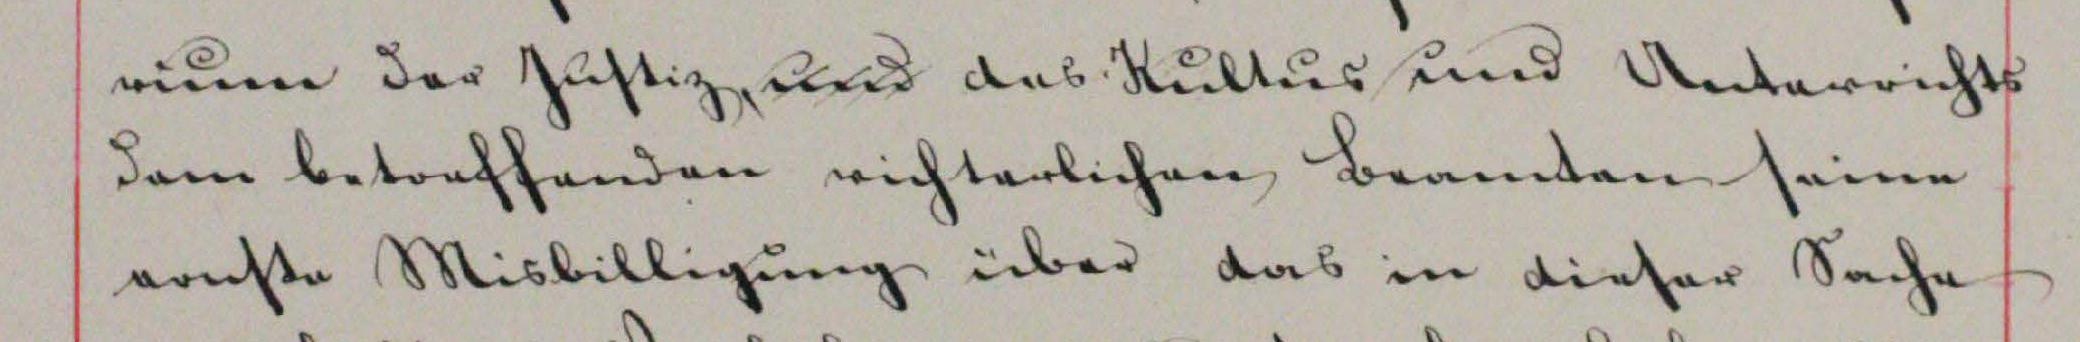 rium der Justiz, und des Kultus und Unterrichts
dem betreffenden richterlichen Beamten seine
ernste Misbilligung über das in dieser Sache